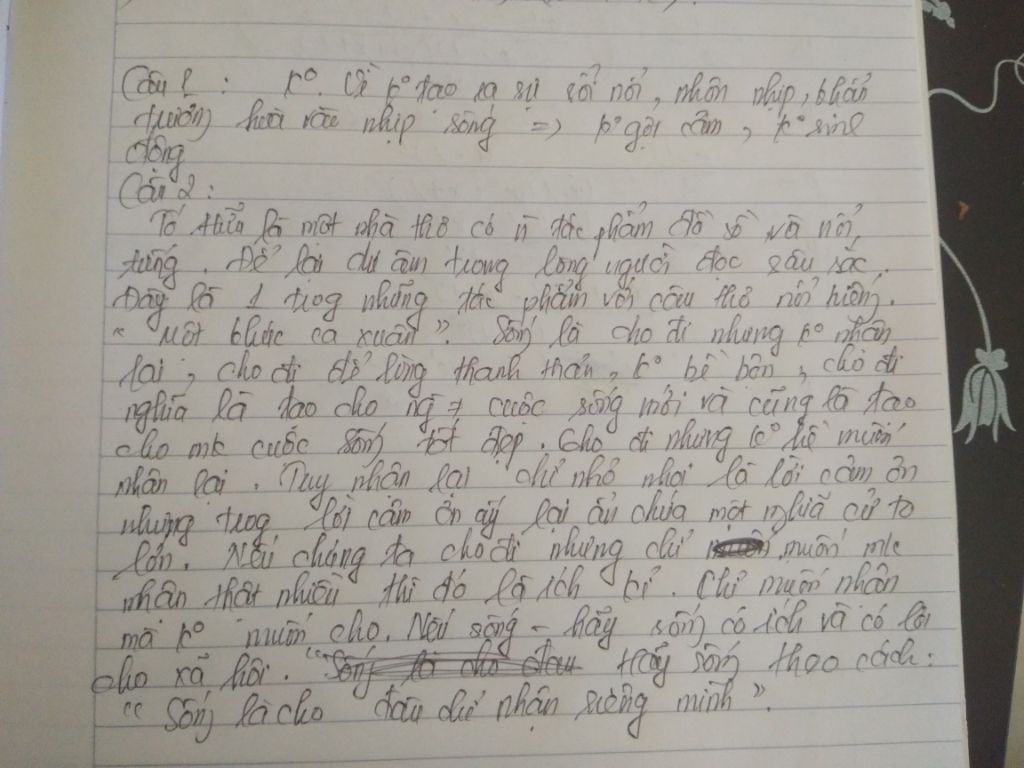 Câu 1 : k°. Vì k° tạo ra sự sôi nổi, nhộn nhịp, khẩn
trương hoà vào nhịp sống => k° gợi cảm, k° sinh
động
Câu 2 :
Tố Hữu là một nhà thơ có n tác phẩm đồ sộ và nổi
tiếng. Để lại dư âm trong lòng người đọc sâu sắc.
Đây là 1 trog những tác phẩm với câu thơ nổi tiếng.
" Một khúc ca xuân ". Sống là cho đi nhưng k° nhận
lại, cho đi để lòng thanh thản, k° bề bộn, cho đi
nghĩa là tạo cho ng ≠ cuộc sống mới và cũng là tạo
cho mk cuộc sống tốt đẹp. Cho đi nhưng k° hề muốn
nhận lại. Tuy nhận lại chỉ nhỏ nhoi là lời cảm ơn
nhưng trog lời cảm ơn ấy lại ẩn chứa một nghĩa cử to
lớn. Nếu chúng ta cho đi nhưng chỉ muốn mk
nhận thật nhiều thì đó là ích kỉ. Chỉ muốn nhận
mà k° muốn cho. Nếu sống - hãy sống có ích và có lợi
cho xã hội. "Sống là cho đâu hãy sống theo cách:
" Sống là cho đâu chỉ nhận riêng mình ".